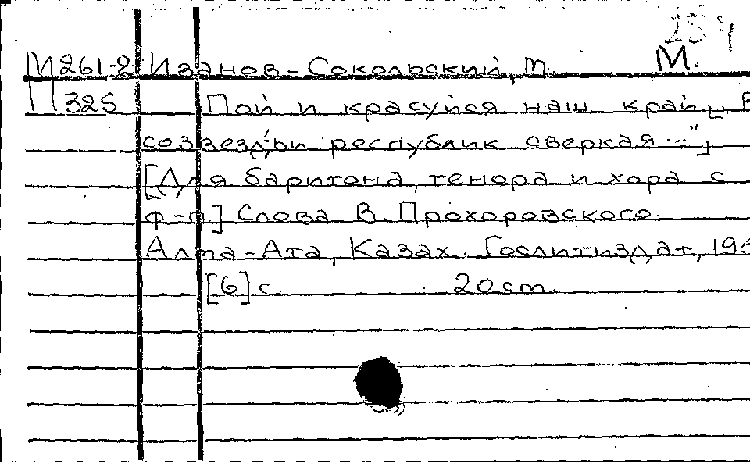 254
М261-2 Иванов-Сокольский, М. М.
П325 Пой и красуйся наш край [„В
созвездьи республик сверкая..."]
[Для баритона, тенора и хора с
ф-п] Слова В. Прохоровского.
Алма-Ата, Казах. Гослитиздат, 19
[6] с. 20cm.